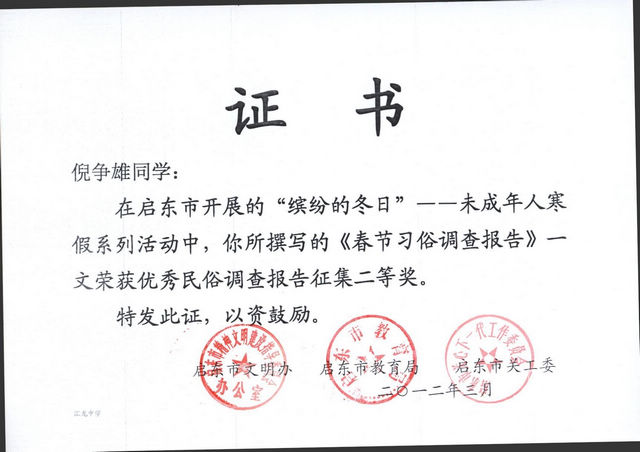 证 书
倪争雄同学：
在启东市开展的“缤纷的冬日”——未成年人寒
假系列活动中，你所撰写的《春节习俗调查报告》一
文荣获优秀民俗调查报告征集二等奖。
特发此证，以资鼓励。
启东市文明办 启东市教育局 启东市关工委
二〇一二年三月
启东市精神文明建设指导委员会
办公室
启东市教育局
心下一代工作委员会
江龙中学